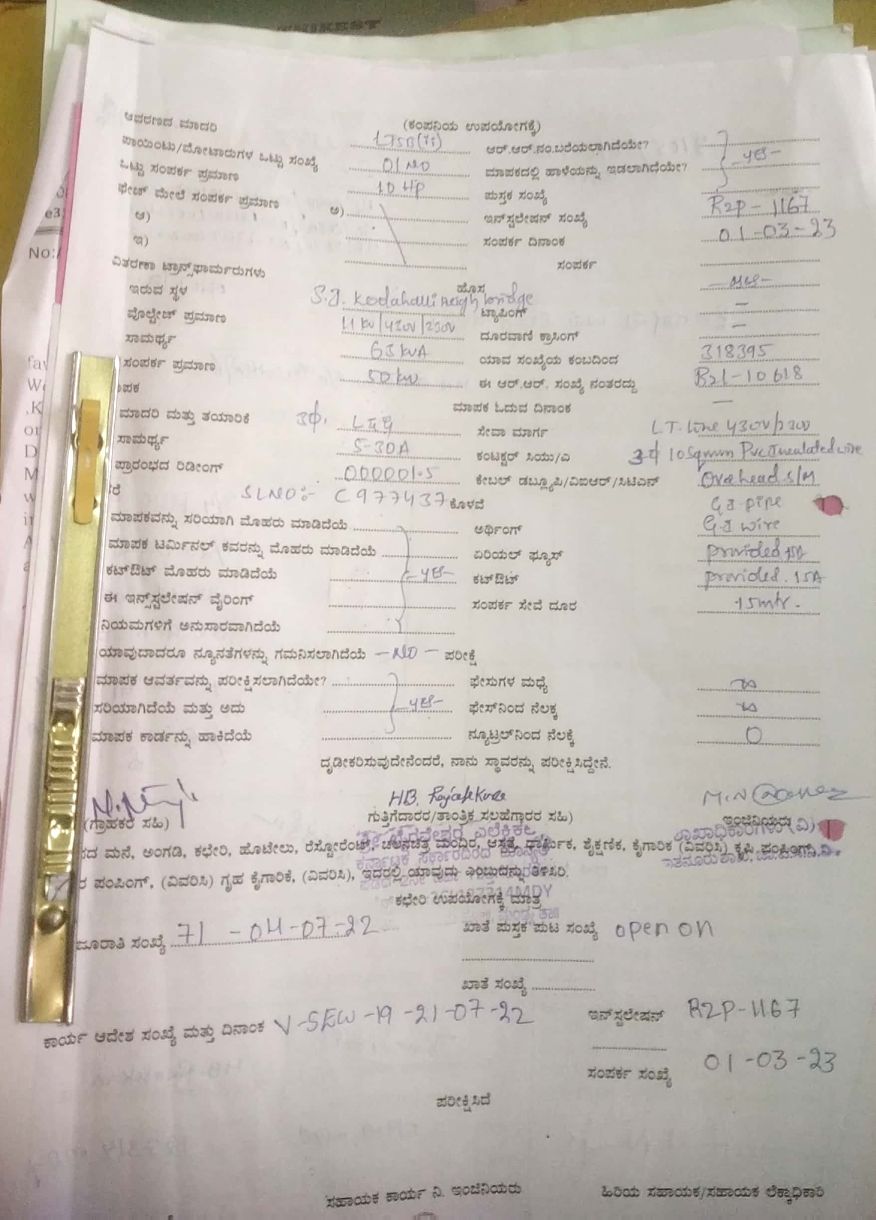 (ಕಂಪನಿಯ ಉಪಯೋಗಕ್ಕೆ)
ಆವರಣದ ಮಾದರಿ LT5B(ii) ಆರ್.ಆರ್.ನಂ.ಬರೆಯಲಾಗಿದೆಯೇ?
ಪಾಯಿಂಟು/ಮೋಟಾರುಗಳ ಒಟ್ಟು ಸಂಖ್ಯೆ 01 NO ಮಾಪಕದಲ್ಲಿ ಹಾಳೆಯನ್ನು ಇಡಲಾಗಿದೆಯೇ? -YES-
ಒಟ್ಟು ಸಂಪರ್ಕ ಪ್ರಮಾಣ 10 HP ಪುಸ್ತಕ ಸಂಖ್ಯೆ
ಫೇಚ್ ಮೇಲೆ ಸಂಪರ್ಕ ಪ್ರಮಾಣ ಅ) ಇನ್‌ಸ್ಟಲೇಷನ್ ಸಂಖ್ಯೆ R2P-1167
ಆ) ಸಂಪರ್ಕ ದಿನಾಂಕ 01-03-23
ಇ) ಸಂಪರ್ಕ
ವಿತರಣಾ ಟ್ರಾನ್ಸ್‌ಫಾರ್ಮರುಗಳು ಹೊಸ
ಇರುವ ಸ್ಥಳ S.J. Kodahalli weigh bridge ಟ್ಯಾಪಿಂಗ್ -
ವೊಲ್ಟೇಜ್ ಪ್ರಮಾಣ 11 kv/430v/230v ದೂರವಾಣಿ ಕ್ರಾಸಿಂಗ್ -
ಸಾಮರ್ಥ್ಯ 63 kVA ಯಾವ ಸಂಖ್ಯೆಯ ಕಂಬದಿಂದ 318395
ಸಂಪರ್ಕ ಪ್ರಮಾಣ 50 kw ಈ ಆರ್.ಆರ್. ಸಂಖ್ಯೆ ನಂತರದ್ದು R2L-10618
ಪಕ ಮಾಪಕ ಓದುವ ದಿನಾಂಕ -
ಮಾದರಿ ಮತ್ತು ತಯಾರಿಕೆ 3ф, L&G ಸೇವಾ ಮಾರ್ಗ L.T. Line 430v/230v
ಸಾಮರ್ಥ್ಯ 5-30A ಕಂಟಕ್ಟರ್ ಸಿಯು/ಎ 3ф 10 Sqmm Pvc Insulated wire
ಪ್ರಾರಂಭದ ರಿಡಿಂಗ್ 000001.5 ಕೇಬಲ್ ಡಬ್ಲ್ಯೂಪಿ/ವಿಐಆರ್/ಸಿಟಿಎನ್ Overhead S/M
ರೆ SLNO:- C977437 ಕೊಳವೆ G.I pipe
ಮಾಪಕವನ್ನು ಸರಿಯಾಗಿ ಮೊಹರು ಮಾಡಿದೆಯೆ ಅರ್ಥಿಂಗ್ G.I wire
ಮಾಪಕ ಟರ್ಮಿನಲ್ ಕವರನ್ನು ಮೊಹರು ಮಾಡಿದೆಯೆ ಏರಿಯಲ್ ಫ್ಯೂಸ್ provided 15A
ಕಟ್‌ಔಟ್ ಮೊಹರು ಮಾಡಿದೆಯೆ -YES- ಕಟ್‌ಔಟ್ provided. 15A
ಈ ಇನ್ಸ್‌ಸ್ಟಲೇಷನ್ ವೈರಿಂಗ್ ಸಂಪರ್ಕ ಸೇವೆ ದೂರ 15mtr.
ನಿಯಮಗಳಿಗೆ ಅನುಸಾರವಾಗಿದೆಯೆ
ಯಾವುದಾದರೂ ನ್ಯೂನತೆಗಳನ್ನು ಗಮನಿಸಲಾಗಿದೆಯೆ -NO- ಪರೀಕ್ಷೆ
ಮಾಪಕ ಆವರ್ತವನ್ನು ಪರೀಕ್ಷಿಸಲಾಗಿದೆಯೇ? ಫೇಸುಗಳ ಮಧ್ಯೆ ∞
ಸರಿಯಾಗಿದೆಯೆ ಮತ್ತು ಅದು -YES- ಫೇಸ್‌ನಿಂದ ನೆಲಕ್ಕೆ ∞
ಮಾಪಕ ಕಾರ್ಡನ್ನು ಹಾಕಿದೆಯೆ ನ್ಯೂಟ್ರಲ್‌ನಿಂದ ನೆಲಕ್ಕೆ 0
ದೃಡೀಕರಿಸುವುದೇನೆಂದರೆ, ನಾನು ಸ್ಥಾವರನ್ನು ಪರೀಕ್ಷಿಸಿದ್ದೇನೆ.
(ಗ್ರಾಹಕರ ಸಹಿ) ಗುತ್ತಿಗೆದಾರರ/ತಾಂತ್ರಿಕ ಸಲಹೆಗಾರರ ಸಹಿ) ಇಂಜಿನಿಯರು
ಶಾಖಾಧಿಕಾರಿಗಳು (ವಿ)
ದ ಮನೆ, ಅಂಗಡಿ, ಕಛೇರಿ, ಹೊಟೇಲು, ರೆಸ್ಟೋರೆಂಟ್, ಚಲನಚಿತ್ರ ಮಂದಿರ, ಆಸ್ಪತ್ರೆ, ಧಾರ್ಮಿಕ, ಶೈಕ್ಷಣಿಕ, ಕೈಗಾರಿಕ (ವಿವರಿಸಿ) ಕೃಷಿ ಪಂಪಿಂಗ್,
ರ ಪಂಪಿಂಗ್, (ವಿವರಿಸಿ) ಗೃಹ ಕೈಗಾರಿಕೆ, (ವಿವರಿಸಿ), ಇದರಲ್ಲಿ ಯಾವುದು ಎಂಬುದನ್ನು ತಿಳಿಸಿರಿ.
ಕಛೇರಿ ಉಪಯೋಗಕ್ಕೆ ಮಾತ್ರ
ಜೂರಾತಿ ಸಂಖ್ಯೆ 71 - 04-07-22 ಖಾತೆ ಪುಸ್ತಕ ಪುಟ ಸಂಖ್ಯೆ open on
ಖಾತೆ ಸಂಖ್ಯೆ
ಕಾರ್ಯ ಆದೇಶ ಸಂಖ್ಯೆ ಮತ್ತು ದಿನಾಂಕ V-SEW-19-21-07-22 ಇನ್‌ಸ್ಟಲೇಷನ್ R2P-1167
ಸಂಪರ್ಕ ಸಂಖ್ಯೆ 01-03-23
ಪರೀಕ್ಷಿಸಿದೆ
ಸಹಾಯಕ ಕಾರ್ಯ ನಿ. ಇಂಜಿನಿಯರು ಹಿರಿಯ ಸಹಾಯಕ/ಸಹಾಯಕ ಲೆಕ್ಕಾಧಿಕಾರಿ